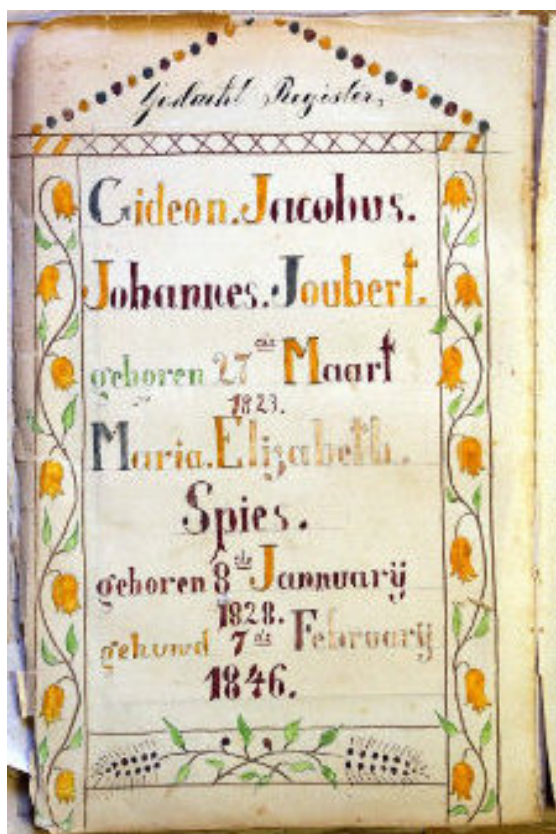 Gedacht Register,
Gideon. Jacobus.
Johannes. Joubert.
geboren 27ste Maart
1823.
Maria. Elizabeth.
Spies.
geboren 8ste Jannuarij
1828.
gehuwd 7de Februarij
1846.